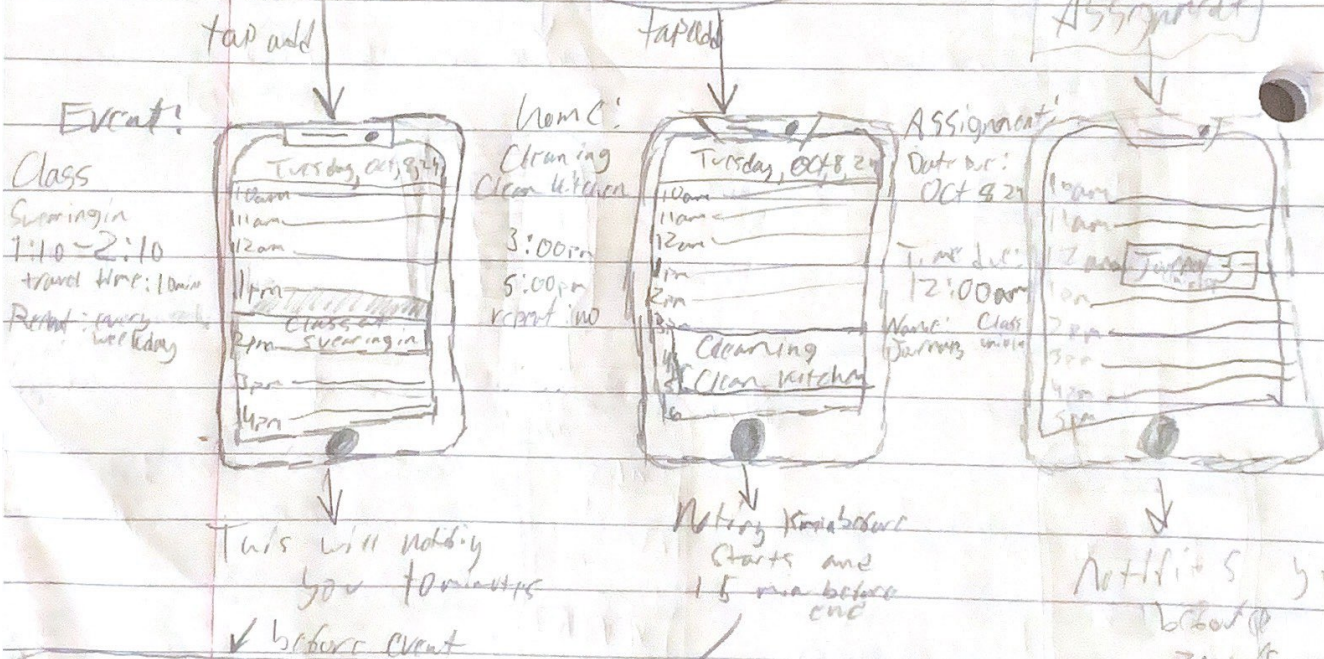 tap add
Event:
Class
Swearingin
1:10-2:10
travel time: 10min
Repeat: every
weekday
Tuesday, Oct, 8, 24
10am
11am
12am
1pm
Class at
2pm Swearingin
3pm
4pm
This will notify
you 10 minutes
before event
tap add
home:
Cleaning
Clean kitchen
3:00pm
5:00pm
repeat: no
Tuesday, Oct 8, 24
10am
11am
12am
1pm
2pm
3pm
4 Cleaning
5 Clean kitchen
6
before
starts and
15 min before
end
Assignment
Assignment:
Date Due:
Oct 8 24
Time due:
12:00am
Name: Class
10am
11am
12am
1pm
2pm
3pm
4pm
5pm
before